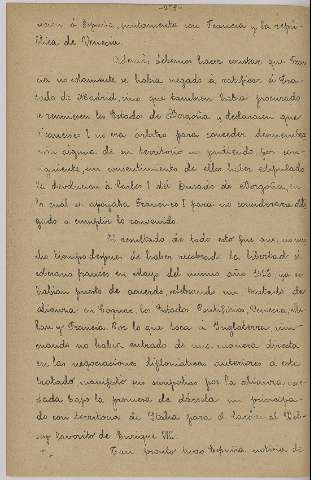 -279-
cción á España, juntamente con Francia y la repú-
blica de Venecia.
Además, debemos hacer constar que Fran-
cia no solamente se habia negado á ratificar el Tra-
tado de Madrid, sino que tambien habia procurado
se reuniesen los Estados de Borgoña y declarasen que
Francisco I no era arbitro para conceder desmembra-
cion alguna de su territorio no pudiendo por con-
siguiente, sin consentimiento de ellos haber estipulado
la devolucion á Carlos I del Ducado de Borgoña, en
lo cual se apoyaba Francisco I para no considerarse obli-
gado a cumplir lo convenido.
El resultado de todo esto fue que, no mu-
cho tiempo despues de haber recobrado la libertad el
soberano francés, en Mayo del mismo año 1526 ya se
habian puesto de acuerdo, celebrando un tratado de
alianza en Cognac los Estados Pontificios, Venecia, Mi-
lan y Francia. Por lo que toca á Inglaterra aun
cuando no habia entrado de una manera directa
en las negociaciones diplomáticas anteriores á este
tratado manifestó sus simpatias por la alianza
bajo la promesa de dársele un principa-
do con territorio de Italia para el
favorito de Enrique VIII.
Tan pronto tuvo España noticia de